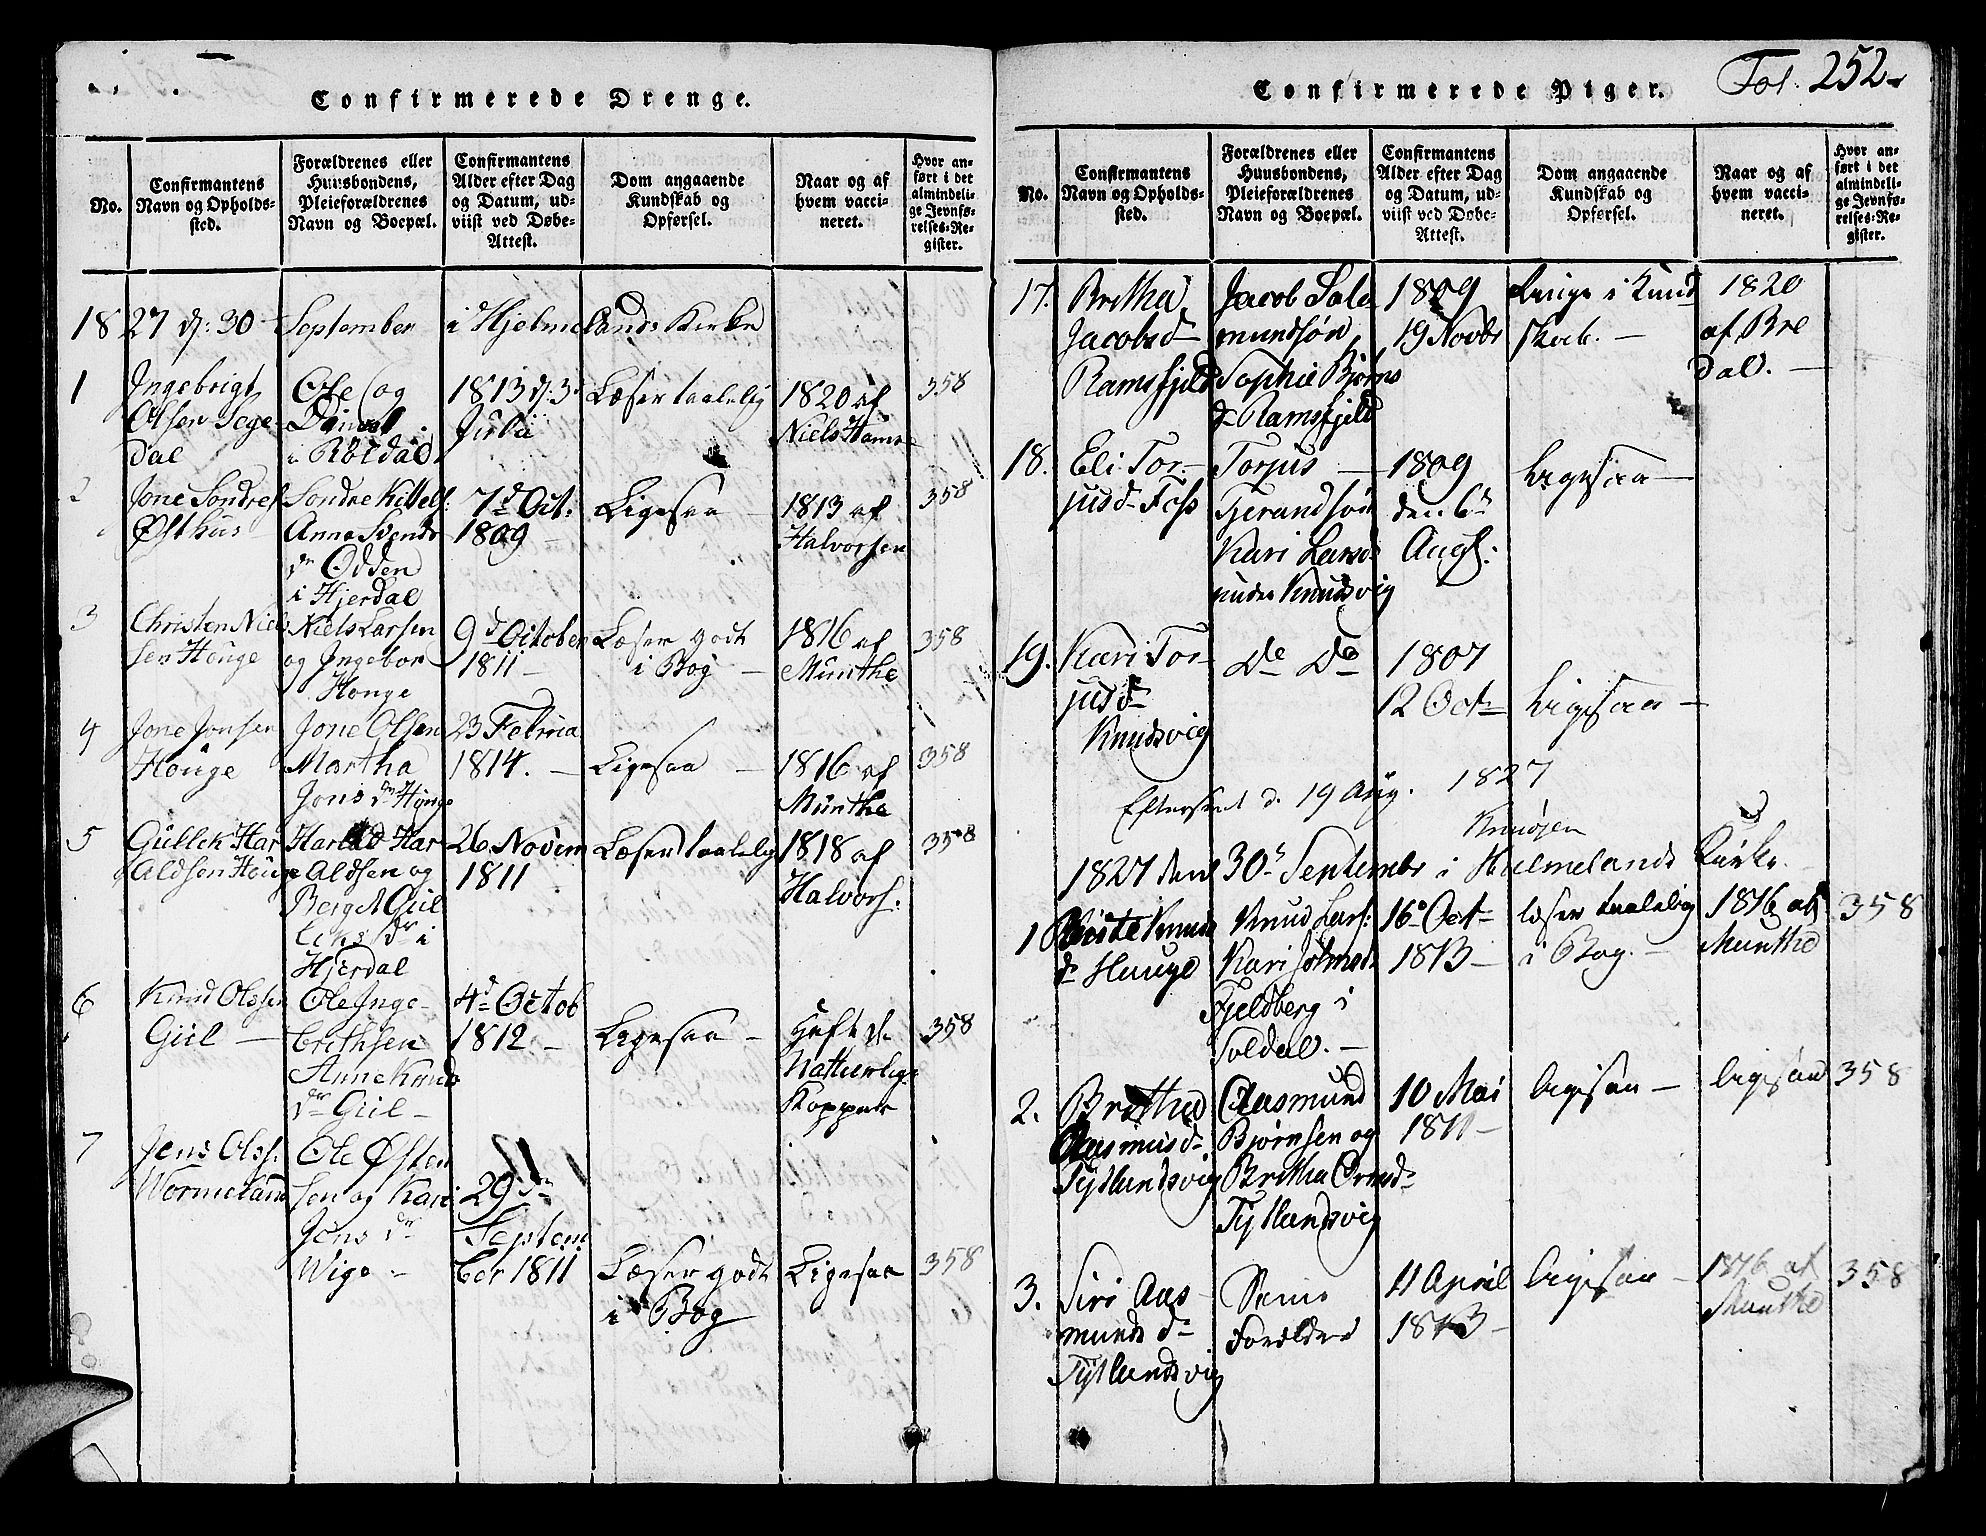 Confirmerede Drenge.
No.
Confirmantens
Navn og Opholds-
sted.
Forældrenes eller
Huusbondens,
Pleieforældrenes
Navn og Boepæl.
Confirmantens
Alder efter Dag
og Datum, ud-
viist ved Døbe-
Attest.
Dom angaaende
Kundskab og
Opførsel.
Naar og af
hvem vacci-
neret.
Hvor an-
ført i det
almindeli-
ge Jevnfø-
relses-Re-
gister.
1827 d: 30 September i Hjelmelands Kirke
1
Ingebrigt
Olsen
dal
Ole og
i Røldal
1813 d: 3
Julii
Læser taalelig
1820 af
Niels
358
2
Jone Sondres
Østhus
Sondre Kittels:
Anna Svends
dr Odden
i Hjerdal
7d Oct:
1809
Ligesaa
1813 af
Halvorsen
358
3
Christen Niel
sen Houge
Niels Larsen
og Ingebor
Houge
9d October
1811
Læser godt
i Bog
1816 af
Münthe
358
4
Jone Jonsen
Houge
Jone Olsen
Martha
Jons dr
23 Februa
1814.
Ligesaa
1816 af
Münthe
358
5
Gullek Har
aldsen Houge
Harald Har
aldsen og
Berget Gul
leks dr i
Hjerdal
26 Novem
1811
Læser taalelig
1818 af
Halvors.
358
6
Knud Olssen
Giil
Ole Inge-
brithsen
Anne Knud
dr Giil
4d Octob
1812
Ligesaa
Hafte de
Natturlige
Kopper
358
7
Jens Olss:
Wormeland
Ole Østen
sen og Kari
Jens dr
Wige
29de
Septem
ber 1811
Læser godt
i Bog
Ligesaa
358
Fol. 252
Confirmerede Piger.
No.
Confirmantens
Navn og Opholds-
sted.
Forældrenes eller
Huusbondens,
Pleieforældrenes
Navn og Boepæl.
Confirmantens
Alder efter Dag
og Datum, ud-
viist ved Døbe-
Attest.
Dom angaaende
Kundskab og
Opførsel.
Naar og af
hvem vacci-
neret.
Hvor an-
ført i det
almindeli-
ge Jevnfø-
relses-Re-
gister.
17.
Britha
Jacobsd
Ramsfjeld
Jacob Sale
mundsøn
Sophie Bjørns
d Ramsfjeld
1809
19 Novbr
Ringe i Kund
skab.
1820
af Bre
dal.
18.
Eli Tor-
jusd Foss
Torjus
Tjerandsøn
Kari Larsd
under Knudsvig
1809
den 6
Augs:
Ligesaa
19.
Kari Tor-
jusd
Knudsvig
De Do
1807
12 Oct
Ligesaa
Efterseet d. 19 Aug. 1827
1827 den 30 Septembr i Hielmelands Kirke.
1
Knuds
d Hauge
Knud Lars:
Kari
Fjeldberg i
Soldal.
16 Oct
1813
læser taalelig
i Bog.
1816 af
Munthe
358
2.
Britha
Aasmusd
Tytlandsvig
Aasmund
Bjørnsen og
Britha Ormsd
Tytlandsvig
10 Mai
1811
ligesaa
ligesaa
358
3.
Siri Aas-
munds d
Tytlandsvig
Forældre
11 April
1813
ligesaa
1816 af
Munthe
358